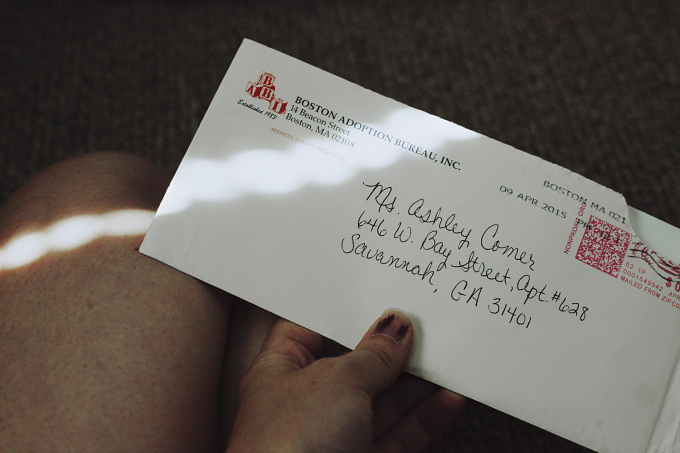 B
A B I
Established 1958
BOSTON ADOPTION BUREAU, INC.
14 Beacon Street
Boston, MA 02108
ADDRESS SERVICE REQUESTED
BOSTON MA 021
09 APR 2015 PM
NONPROFIT ORG
02 1P
0001649942 APR
MAILED FROM ZIP CO
Ms. Ashley Comer
646 W. Bay Street, Apt. #628
Savannah, GA 31401